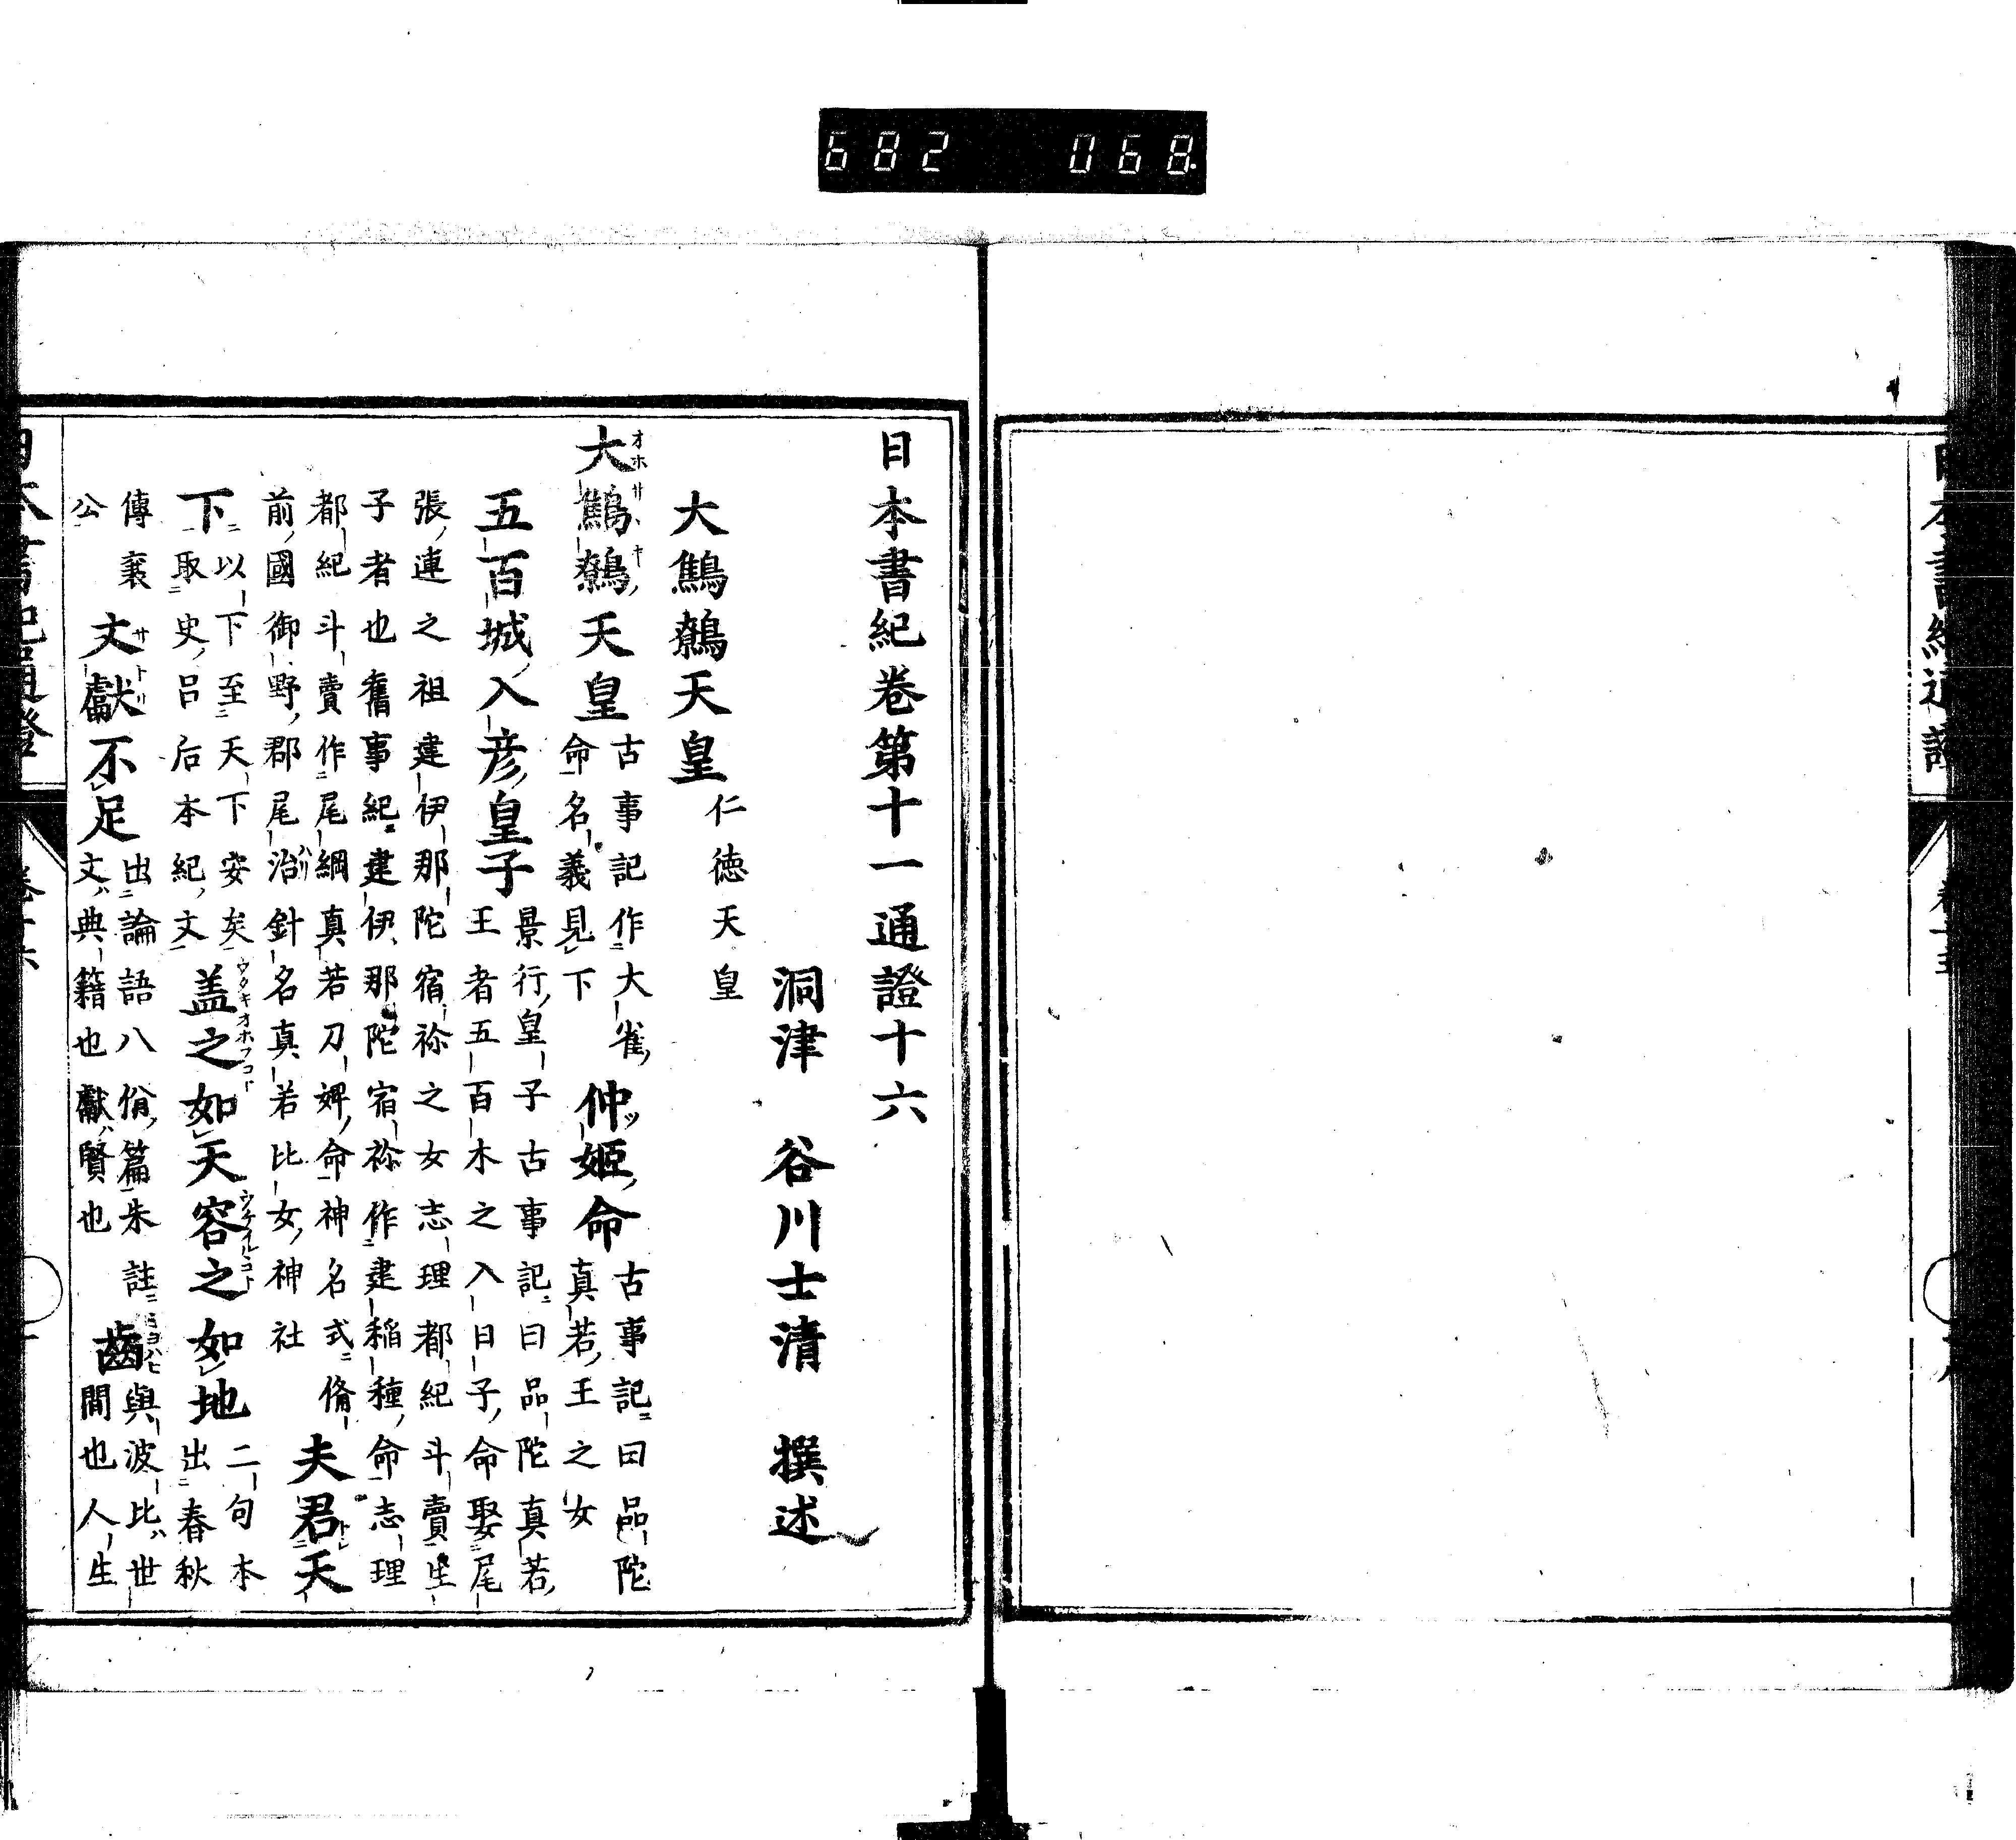 682 068
日本書紀卷第十一通證十六
洞津 谷川士清 撰述
大鷦鷯天皇 仁徳天皇
大鷦鷯天皇 古事記作大雀命名義見下 仲姬命 古事記曰品陀真若王之女
五百城入彦皇子 景行皇子古事記曰品陀真若王者五百木之入日子命娶尾
張連之祖建伊那陀宿祢之女志理都紀斗賣生
子者也舊事紀建伊那陀宿祢作建稲種命志理
都紀斗賣作尾綱真若刀婢命神名式備
前國御野郡尾治針名真若比女神社 夫君天
下 以下至天下安矣取史呂后本紀文 盖之如天容之如地 二句本出春秋
傳襄公 文獻不足 出論語八佾篇朱註文典籍也獻賢也 齒 與波比世間也人生